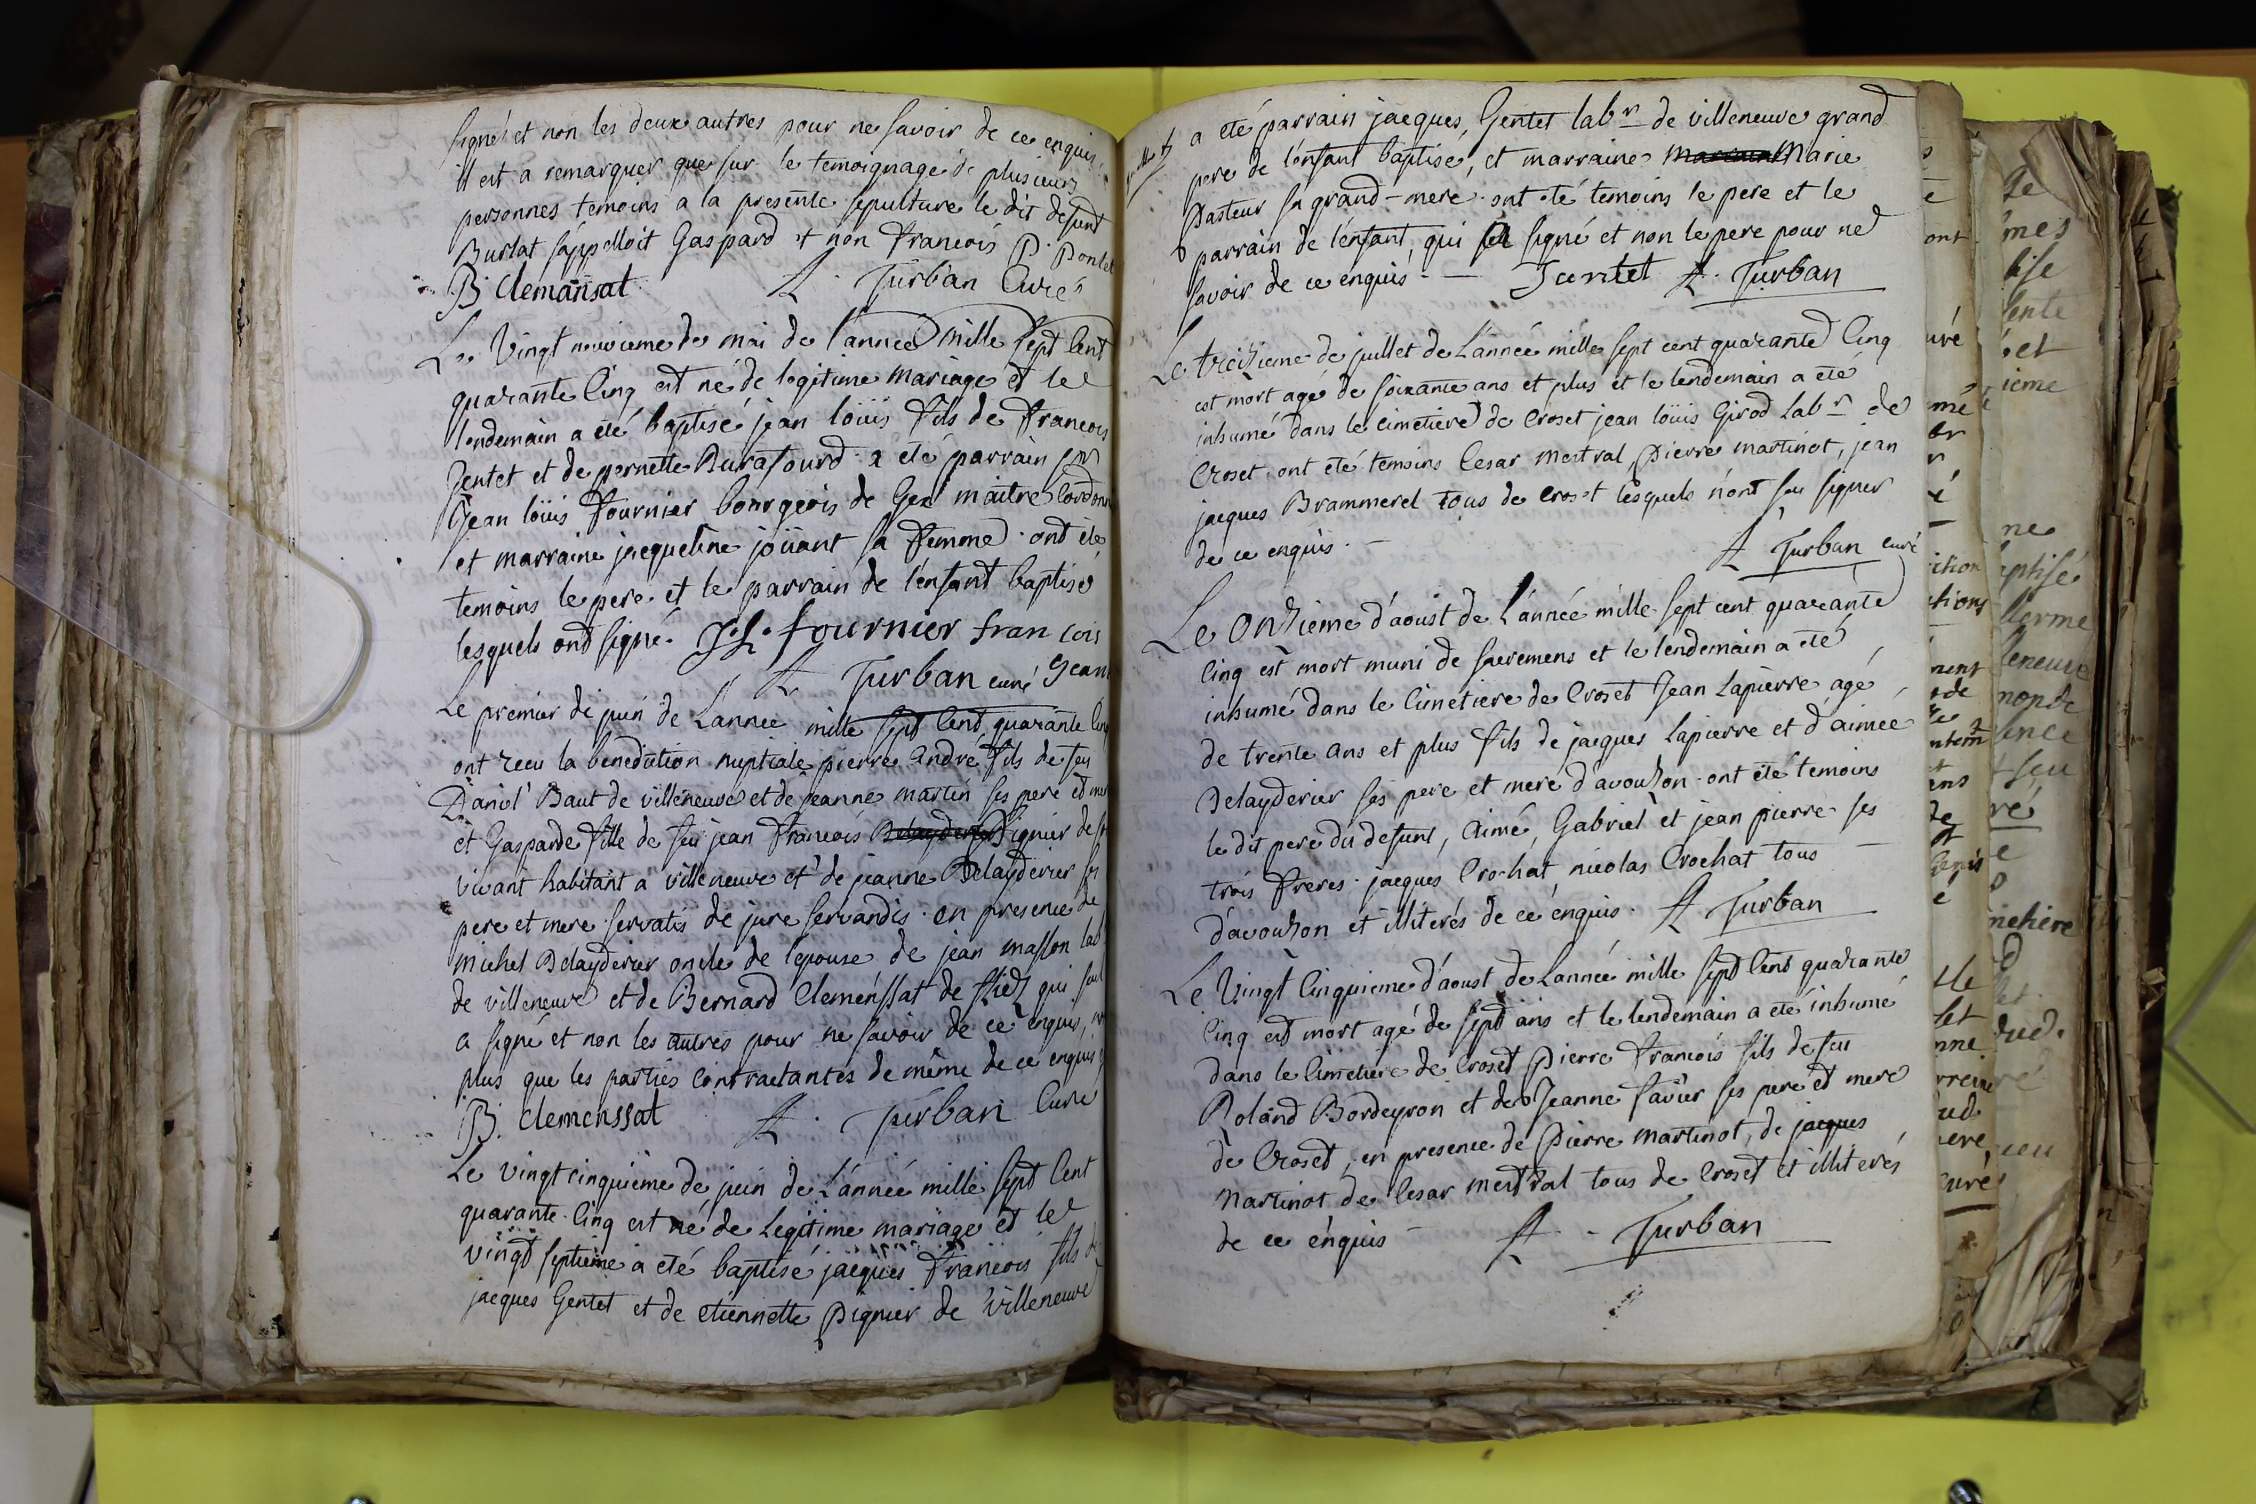 signé et non les deux autres pour ne savoir de ce enquis
il est a remarquer que sur le temoignage de plusieurs
personnes temoins a la presente sepulture le dit defunt
Burlat s'appelloit Gaspard et non francois P. Ponset
B clemansat A. Turban Curé
Le Vingt neuvieme de mai de l'année mille sept Cent
quarante Cinq est né de legitime Mariage et le
lendemain a eté baptisé jean loüis fils de francois
Jentet et de pernette Burafourd a eté parrain
jean loüis fournier bourgeois de Gex maitre Cordonn
et marraine jacqueline joüant sa femme ont eté
temoins le pere et le parrain de l'enfant baptisé
lesquels ont signé. J.L. fournier fran cois
A Turban curé
Le premier de juin de Lannee mille sept Cent quarante Cinq
ont recu la benediction nuptiale pierre andré fils de feu
Daniel Baut de villeneuve et de jeanne martin ses pere et mere
et Gasparde fille de feu jean francois Delayderier Pignier de
vivant habitant a villeneuve et de jeanne Delayderier ses
pere et mere servatis de jure servandis en presence de
michel Delayderier oncle de l'epouse de jean masson lab
de villeneuve et de Bernard Clemenssat de fliez qui seul
a signé et non les autres pour ne savoir de ce enquis,
plus que les parties Contractantes de même de ce enquis
B. Clemenssat A. Turban Curé
Le vingtcinquieme de juin de l'année mille sept Cent
quarante Cinq est né de Legitime mariage et le
vingt septieme a eté baptisé jacques francois fils de
jacques Gentet et de etiennette Pignier de villeneuve
a eté parrain jacques Gentet labr de villeneuve grand
pere de l'enfant baptisé, et marraine Marie
Pasteur sa grand-mere ont eté temoins le pere et le
parrain de l'enfant, qui a signé et non le pere pour ne
savoir de ce enquis — Jantet A. Turban
Le treizieme de juillet de L'année mille sept cent quarante Cinq
est mort agé de soixante ans et plus et le lendemain a eté
inhumé dans le cimetiere de Croset jean loüis Girod Labr de
Croset ont eté temoins Cesar Mestral, Pierre martinot, jean
jacques Brammerel tous de Croset lesquels n'ont seu signer
de ce enquis — A Turban curé
Le Onzieme d'aoust de L'année mille sept cent quarante
Cinq est mort muni de sacremens et le lendemain a eté
inhumé dans le Cimetiere de Croset Jean Lapierre agé
de trente ans et plus fils de jacques Lapierre et d'aimee
Delayderier ses pere et mere d'avouzon ont eté temoins
le dit pere du defunt, aimé, Gabriel et jean pierre ses
trois freres jacques Crochat nicolas Crochat tous —
d'avouzon et illiterés de ce enquis. A Turban
Le Vingt Cinquieme d'aoust de Lannée mille sept Cent quarante
Cinq est mort agé de sept ans et le lendemain a eté inhumé
dans le Cimetiere de Croset Pierre francois fils de feu
Roland Bordeyron et de Jeanne savier ses pere et mere
de Croset, en presence de Pierre Martinot, de jacques
Martinot de Cesar mestral tous de Croset et illiterés
de ce enquis — A. Turban